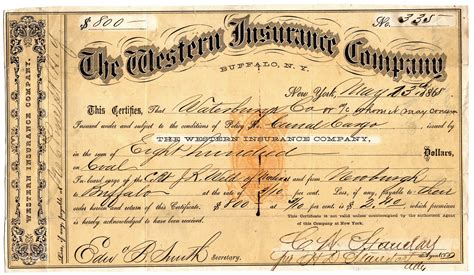 $ 800 — No. 338
The Western Insurance Company
BUFFALO, N.Y.
New York, May 23d 1868
This Certifies, That Waterbury & Co or To whom it may concern
Insured under and subject to the conditions of Policy Canal Cargo issued by
THE WESTERN INSURANCE COMPANY,
in the sum of Eight hundred Dollars,
on Coal
On board cargo of the C.Bt J.R. Weld of from Newburgh
to Buffalo at the rate of 3/10 per cent. Loss, if any, payable to their
order hereon. $800 @ 3/10 per cent. is $ 2.40 which premium
is hereby acknowledged to have been received.
This Certificate is not valid unless countersigned by the authorized Agent
of this Company at New York.
Edw. B. Smith Secretary.
Agent
WESTERN INSURANCE COMPANY,